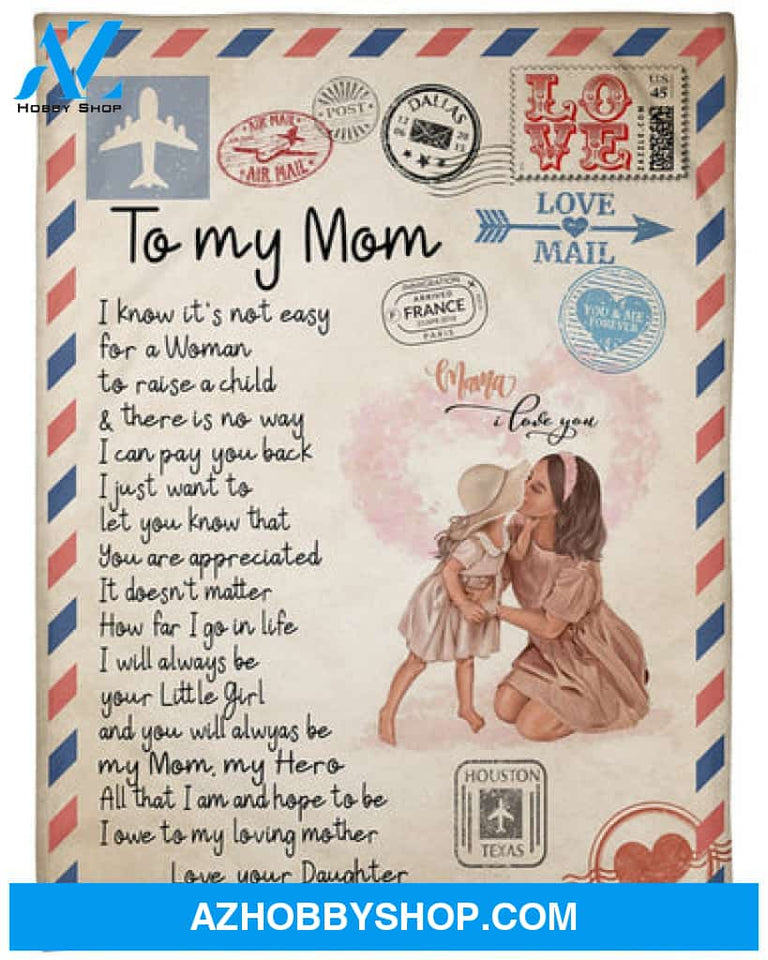 AZ
HOBBY SHOP
AIR MAIL
AIR MAIL
POST
DALLAS
LOVE
US
45
ZAZZLE.COM
LOVE
MAIL
To my Mom
IMMIGRATION
ARRIVED
F FRANCE
PARIS
YOU & ME
FOREVER
Mama
i love you
I know it's not easy
for a Woman
to raise a child
& there is no way
I can pay you back
I just want to
let you know that
You are appreciated
It doesn't matter
How far I go in life
I will always be
your Little Girl
and you will alwyas be
my Mom, my Hero
All that I am and hope to be
I owe to my loving mother
Love, your Daughter
HOUSTON
TEXAS
AZHOBBYSHOP.COM